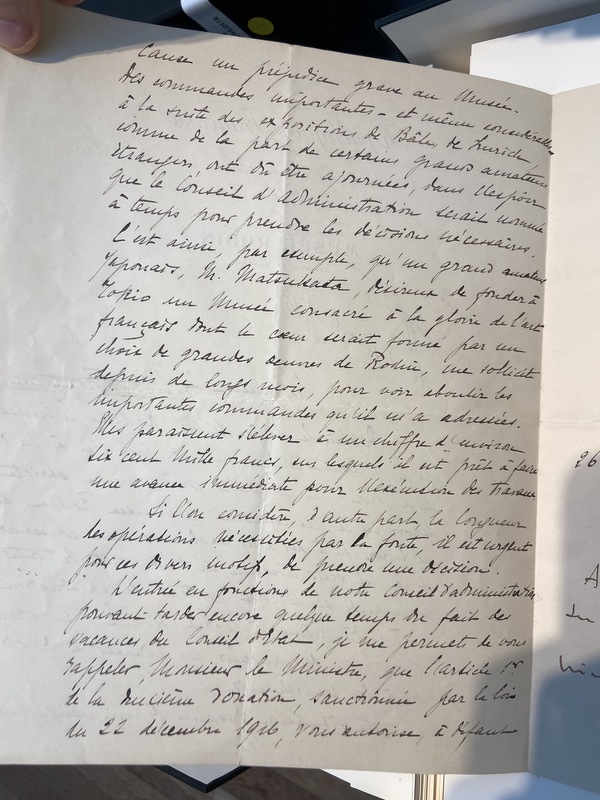 cause un préjudice grave au Musée.
Des commandes importantes - et même considérables
à la suite des expositions de Bâle, de Zurich,
comme de la part de certains grands amateurs
étrangers, ont dû être ajournées, dans l'espoir
que le Conseil d'Administration serait nommé
à temps pour prendre les décisions nécessaires.
C'est ainsi par exemple, qu'un grand amateur
japonais, M. Matsukata, désireux de fonder à
Tokio un Musée consacré à la gloire de l'art
français dont le cœur serait formé par un
choix de grandes œuvres de Rodin, me sollicite
depuis de longs mois, pour voir aboutir les
importantes commandes qu'il m'a adressées.
Elles paraissent s'élever à un chiffre d'environ
six cent mille francs, sur lesquels il est prêt à faire
une avance immédiate pour l'exécution des travaux.
Si l'on considère, d'autre part, la longueur
des opérations nécessitées par la fonte, il est urgent
pour ces divers motifs, de prendre une décision.
L'entrée en fonctions de notre Conseil d'administration
pouvant tarder encore quelque temps du fait des
vacances du Conseil d'Etat, je me permets de vous
rappeler, Monsieur le Ministre, que l'article 1er
de la deuxième donation, sanctionnée par la loi
du 22 décembre 1916, vous autorise, à défaut
26